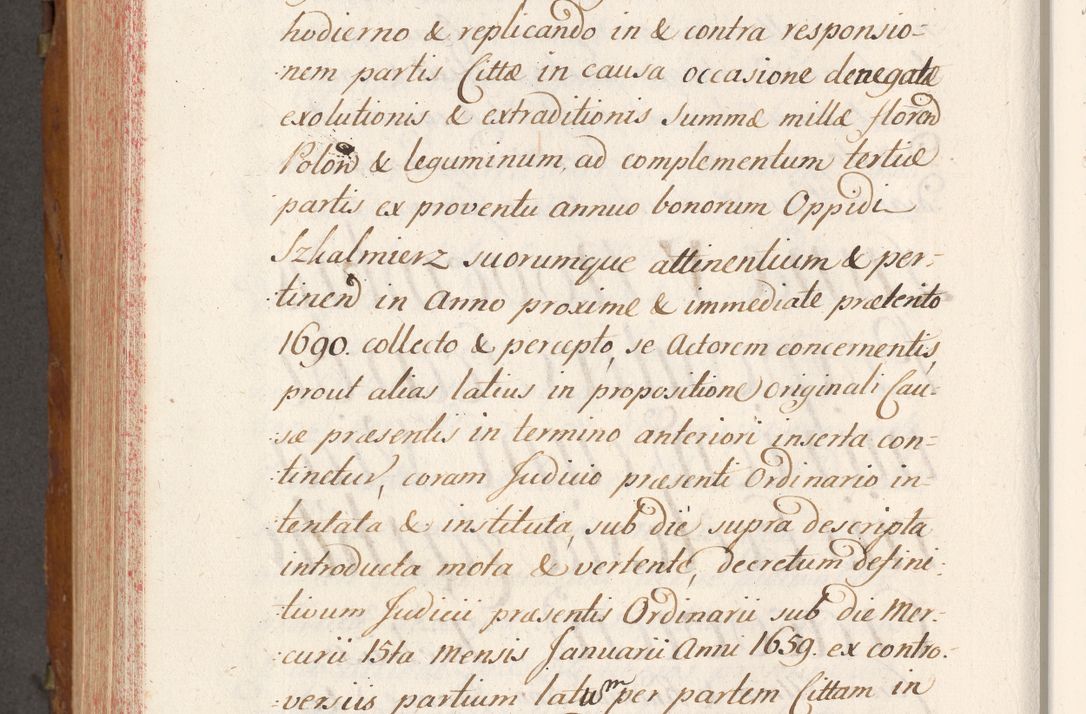 hodierno & replicando in & contra responsio-
nem partis Cittæ in causa occasione denegatæ
exolutionis & extraditionis summæ millæ floren
Polon & leguminum, ad complementum tertiæ
partis ex proventu annuo bonorum Oppidi
Szkalmierz suorumque attinentium & per-
tinen in Anno proxime & immediate præterito
1690. collecto & percepto, se Actorem concernentis,
prout alias latius in propositione originali Cau-
sæ præsentis in termino anteriori inserta con-
tinetur, coram Judicio præsenti Ordinario in-
tentata & instituta, sub die supra descripta
introducta mota & vertente, decretum defini-
tivum Judicii præsentis Ordinarii sub die Mer-
curii 15ta Mensis Januarii Anni 1659. ex contro-
versiis partium latum per partem Cittam in